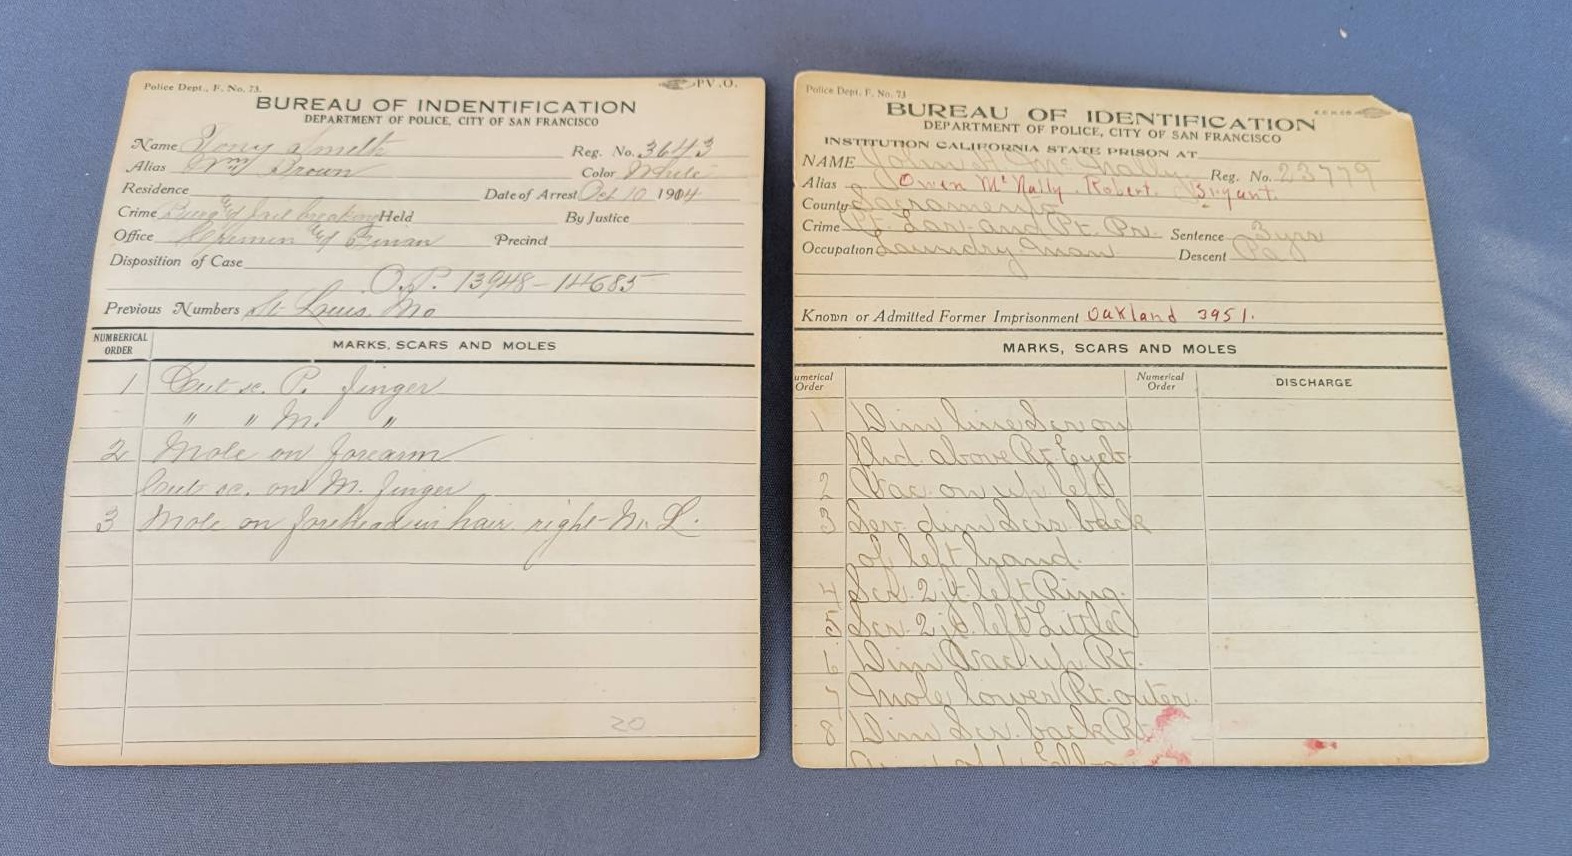 Police Dept., F. No. 73.
PV.O.
BUREAU OF INDENTIFICATION
DEPARTMENT OF POLICE, CITY OF SAN FRANCISCO
Name Tony Smith Reg. No. 3643
Alias Wm Brown Color White
Residence Date of Arrest Oct 10 1904
Crime Burg & Jail breaking Held By Justice
Office Precinct
Disposition of Case
O.P. 13948-14685
Previous Numbers St Louis Mo
NUMBERICAL ORDER MARKS, SCARS AND MOLES
1 Cut sc. P. finger
" " M. "
2 Mole on forearm
Cut sc. on M. finger
3 Mole on forehead in hair right Nr. L.
20
Police Dept. F. No. 73
BUREAU OF IDENTIFICATION
DEPARTMENT OF POLICE, CITY OF SAN FRANCISCO
INSTITUTION CALIFORNIA STATE PRISON AT
NAME John H. McNally Reg. No. 23779
Alias Owen McNally Robert Bryant.
County Sacramento
Crime Pt. Lar. and Pt. Pr. Sentence 3 yrs
Occupation Laundry man Descent Pa
Known or Admitted Former Imprisonment Oakland 3951.
MARKS, SCARS AND MOLES
umerical Order Numerical Order DISCHARGE
1 Dim line Scr on
fhd. above Rt. Eyeb.
2 Vac. on up left
3 Sev. dim Scrs. back
of left hand.
4 Scr. 2 jt. left Ring.
5 Scr. 2 jt. left Little
6 Dim Vac up Rt.
7 Mole lower Rt. outer.
8 Dim Scr. back Rt.